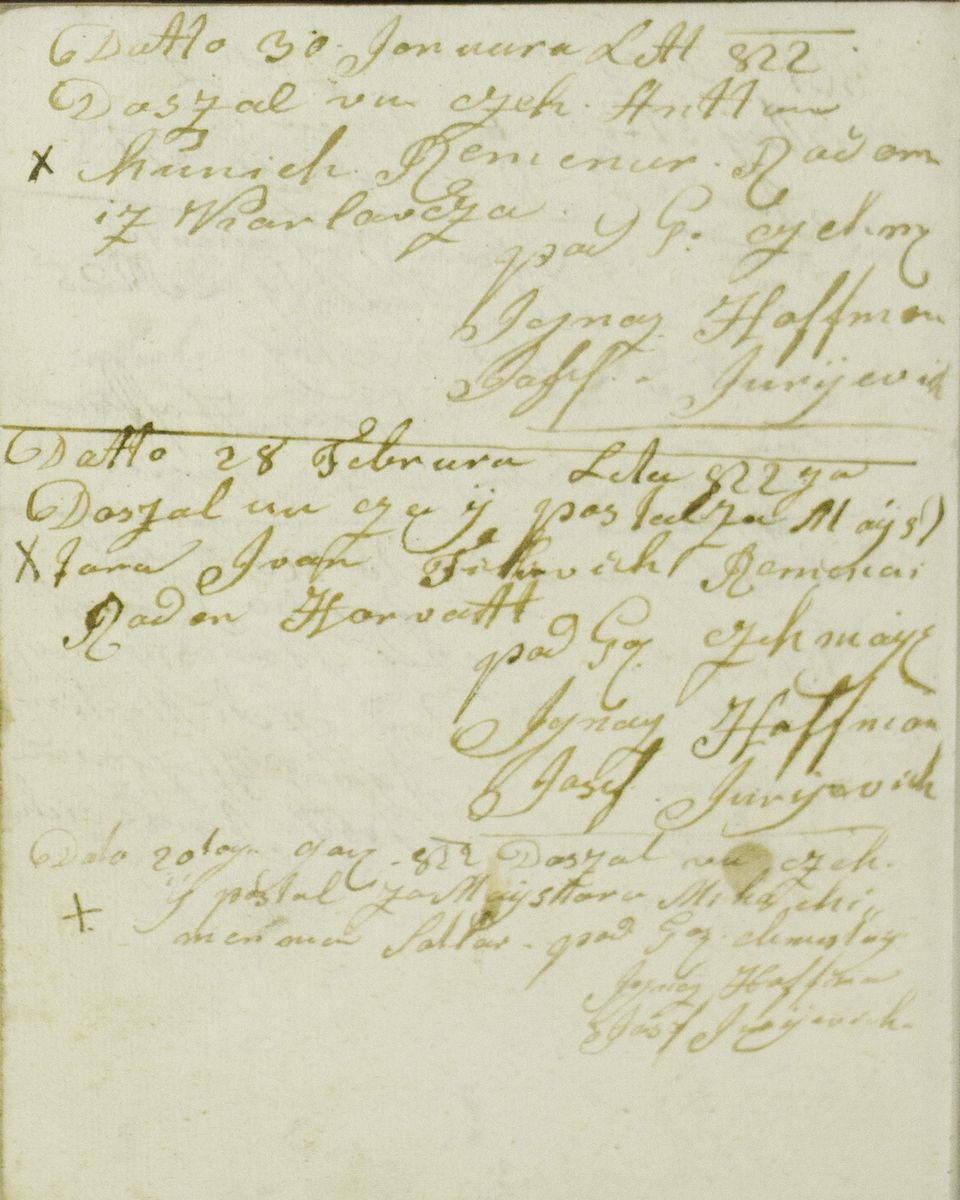 Datto 30. Januura Lett 822
Doszal vu czeh. Anttun
X Kunich Remenur. Rodom
iz Karlovcza
pod G. czehm
Ignaz Hoffman
Josef. Jurijevich
Datto 28 Februra Leta 822 ga
Doszal vu czeh ÿ postal za Mays)
X tara Ivan Remenar
Roden Horvatt
pod Gz. czehmays
Ignaz Hoffman
Josef. Jurijevich
Dato 20 toga 822 Doszal vu czeh.
ÿ postal za Maysttora
+ pod Goz.
Ignaz Hoffman
Josef Jurijevich.